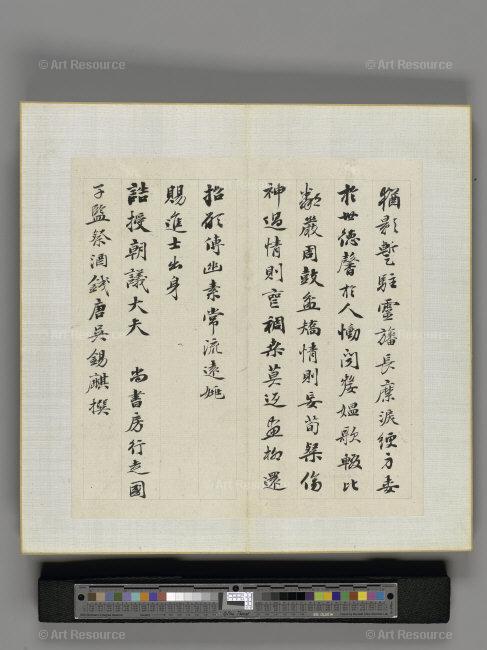 © Art Resource
© Art Resource
猶影蹔駐靈旛長縻淚綆方委
於世德馨於人慟閔嫠媼歌輟比
鄰嚴周鼓盆矯情則妄荀粲傷
神過情則稠桑莫返畫還
招傳幽素常流遠
賜進士出身
誥授朝議大夫 尚書房行走國
子監祭酒錢唐吳錫麒撰
© Art Resource
© Art Resource